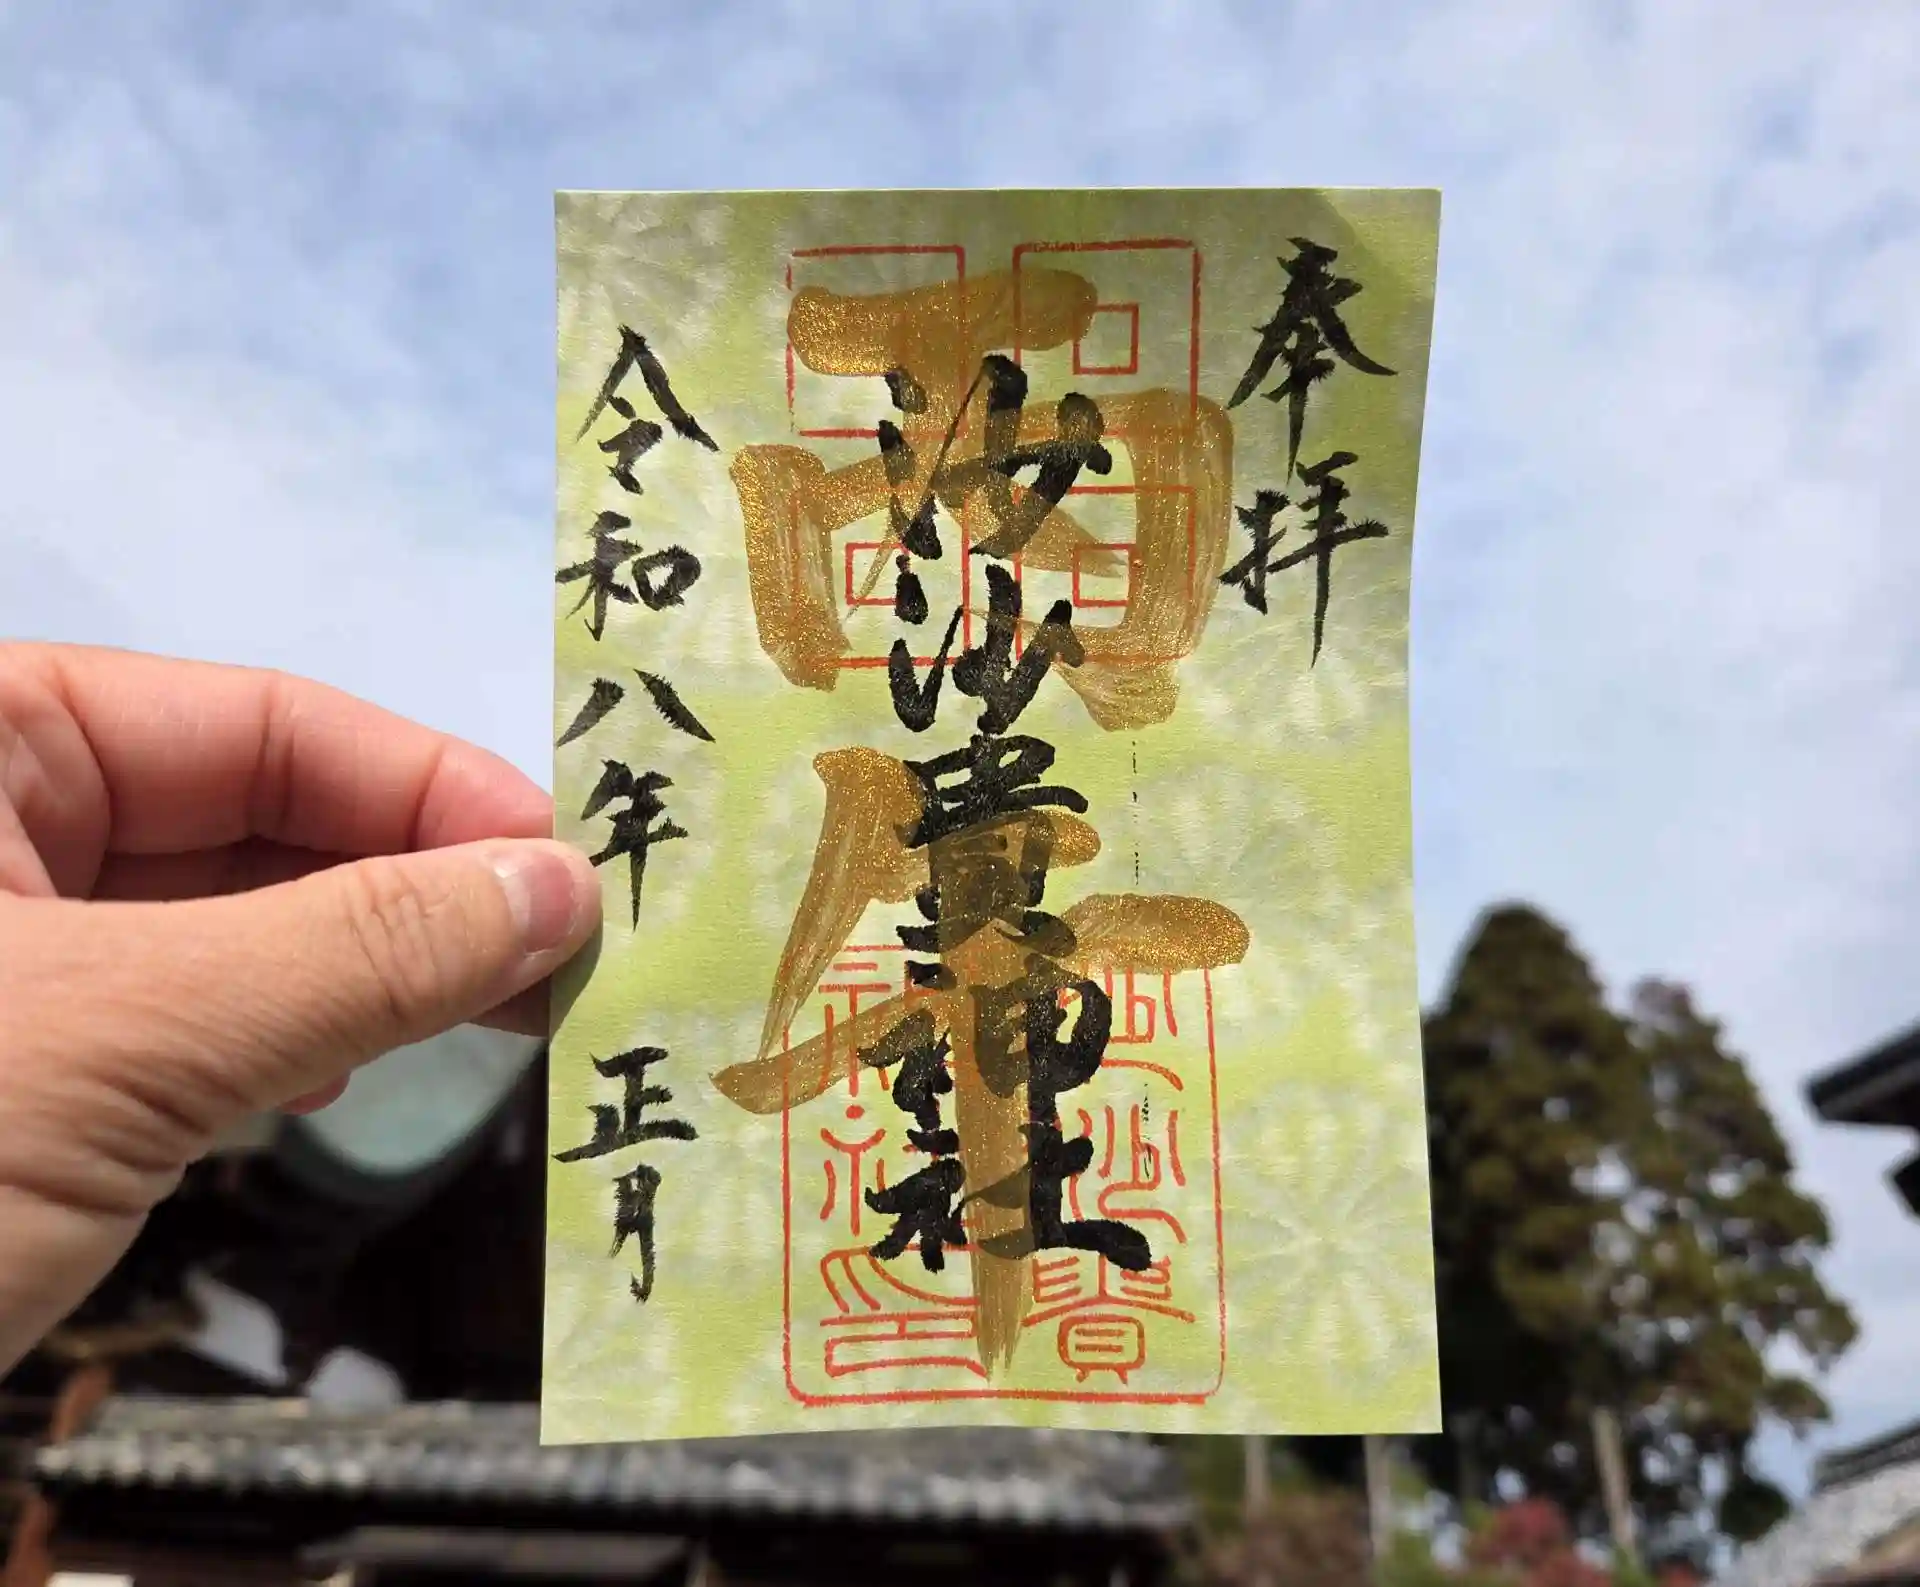 奉拝
丙午
沙沙貴神社
沙沙貴
神社之印
令和八年 正月